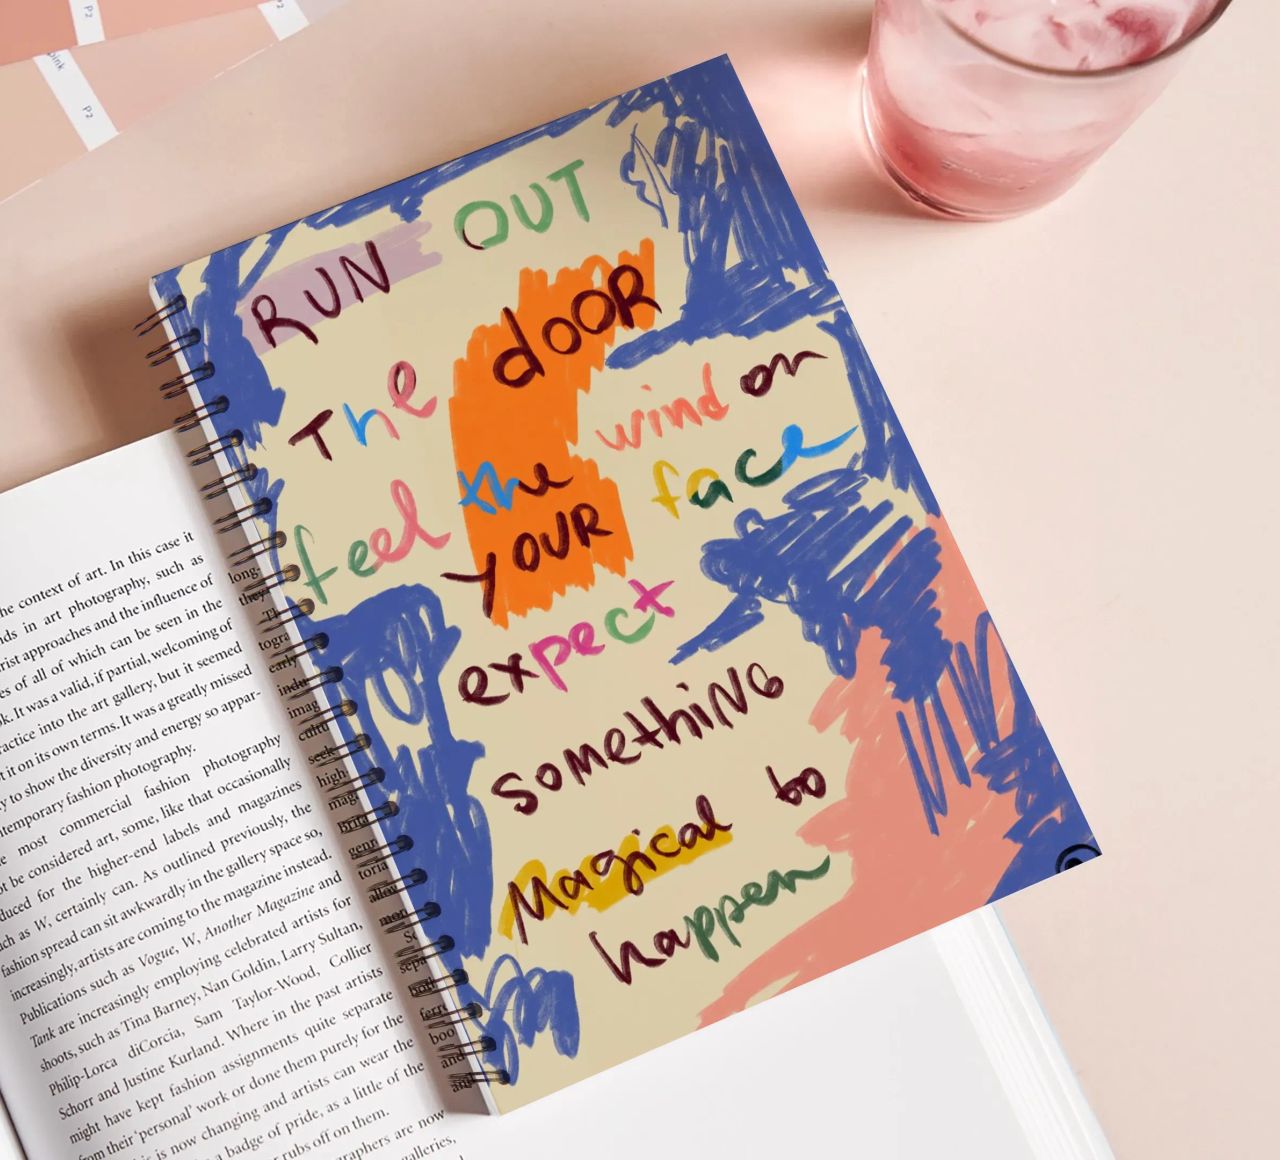 P2
P2
pink
P2
RUN OUT
The dOOR
feel the wind on
YOUR face
expect
somethiNG
Magical to
happen
the context of art. In this case it
nds in art photography, such as
rist approaches and the influence of
es of all of which can be seen in the
k. It was a valid, if partial, welcoming of
ractice into the art gallery, but it seemed
t it on its own terms. It was a greatly missed
y to show the diversity and energy so appar-
temporary fashion photography.
e most commercial fashion photography
ot be considered art, some, like that occasionally
duced for the higher-end labels and magazines
ch as W, certainly can. As outlined previously, the
fashion spread can sit awkwardly in the gallery space so,
increasingly, artists are coming to the magazine instead.
Publications such as Vogue, W, Another Magazine and
Tank are increasingly employing celebrated artists for
shoots, such as Tina Barney, Nan Goldin, Larry Sultan,
Philip-Lorca diCorcia, Sam Taylor-Wood, Collier
Schorr and Justine Kurland. Where in the past artists
might have kept fashion assignments quite separate
from their 'personal' work or done them purely for the
is is now changing and artists can wear the
a badge of pride, as a little of the
r rubs off on them.
graphers are now
galleries,
long-
they
Th
togra
early
indu
imag
cultu
seek
high
mag
Brita
genr
toria
allow
mon
So
sepa
both
ferr
boo
and